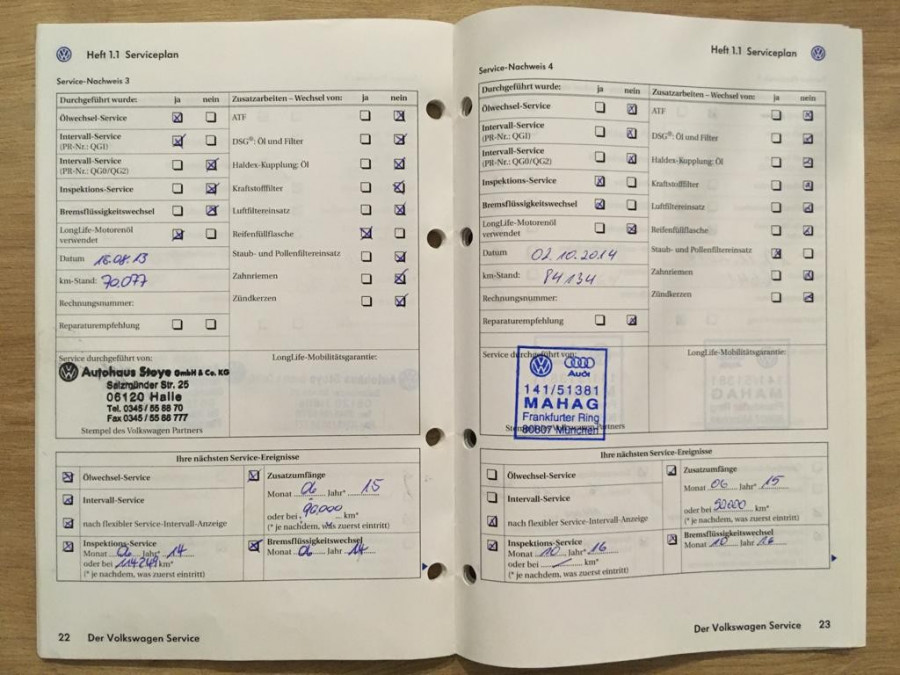 Heft 1.1 Serviceplan
Service-Nachweis 3
Durchgeführt wurde: ja nein Zusatzarbeiten – Wechsel von: ja nein
Ölwechsel-Service ATF
Intervall-Service
(PR-Nr.: QGI) DSG®: Öl und Filter
Intervall-Service
(PR-Nr.: QG0/QG2) Haldex-Kupplung: Öl
Inspektions-Service Kraftstofffilter
Bremsflüssigkeitswechsel Luftfiltereinsatz
LongLife-Motorenöl
verwendet Reifenfüllflasche
Datum 16.08.13 Staub- und Pollenfiltereinsatz
km-Stand: 70.077 Zahnriemen
Rechnungsnummer: Zündkerzen
Reparaturempfehlung
Service durchgeführt von: LongLife-Mobilitätsgarantie:
Autohaus Stoye GmbH & Co. KG
Salzmünder Str. 25
06120 Halle
Tel. 0345/55 88 70
Fax 0345/55 88 777
Stempel des Volkswagen Partners
Ihre nächsten Service-Ereignisse
Ölwechsel-Service Zusatzumfänge
Monat 06 Jahr* 15
Intervall-Service oder bei 90.000 km*
nach flexibler Service-Intervall-Anzeige (* je nachdem, was zuerst eintritt)
Inspektions-Service Bremsflüssigkeitswechsel
Monat 06 Jahr* 14 Monat 06 Jahr 14
oder bei km*
(* je nachdem, was zuerst eintritt)
22 Der Volkswagen Service
Heft 1.1 Serviceplan
Service-Nachweis 4
Durchgeführt wurde: ja nein Zusatzarbeiten – Wechsel von: ja nein
Ölwechsel-Service ATF
Intervall-Service
(PR-Nr.: QGI) DSG®: Öl und Filter
Intervall-Service
(PR-Nr.: QG0/QG2) Haldex-Kupplung: Öl
Inspektions-Service Kraftstofffilter
Bremsflüssigkeitswechsel Luftfiltereinsatz
LongLife-Motorenöl
verwendet Reifenfüllflasche
Datum 02.10.2014 Staub- und Pollenfiltereinsatz
km-Stand: 84134 Zahnriemen
Rechnungsnummer: Zündkerzen
Reparaturempfehlung
Service durchgeführt von: LongLife-Mobilitätsgarantie:
Audi
141/51381
MAHAG
Frankfurter Ring
80807 München
Ihre nächsten Service-Ereignisse
Ölwechsel-Service Zusatzumfänge
Monat 06 Jahr* 15
Intervall-Service oder bei km*
nach flexibler Service-Intervall-Anzeige (* je nachdem, was zuerst eintritt)
Inspektions-Service Bremsflüssigkeitswechsel
Monat 10 Jahr* 16 Monat 10 Jahr 16
oder bei km*
(* je nachdem, was zuerst eintritt)
Der Volkswagen Service 23